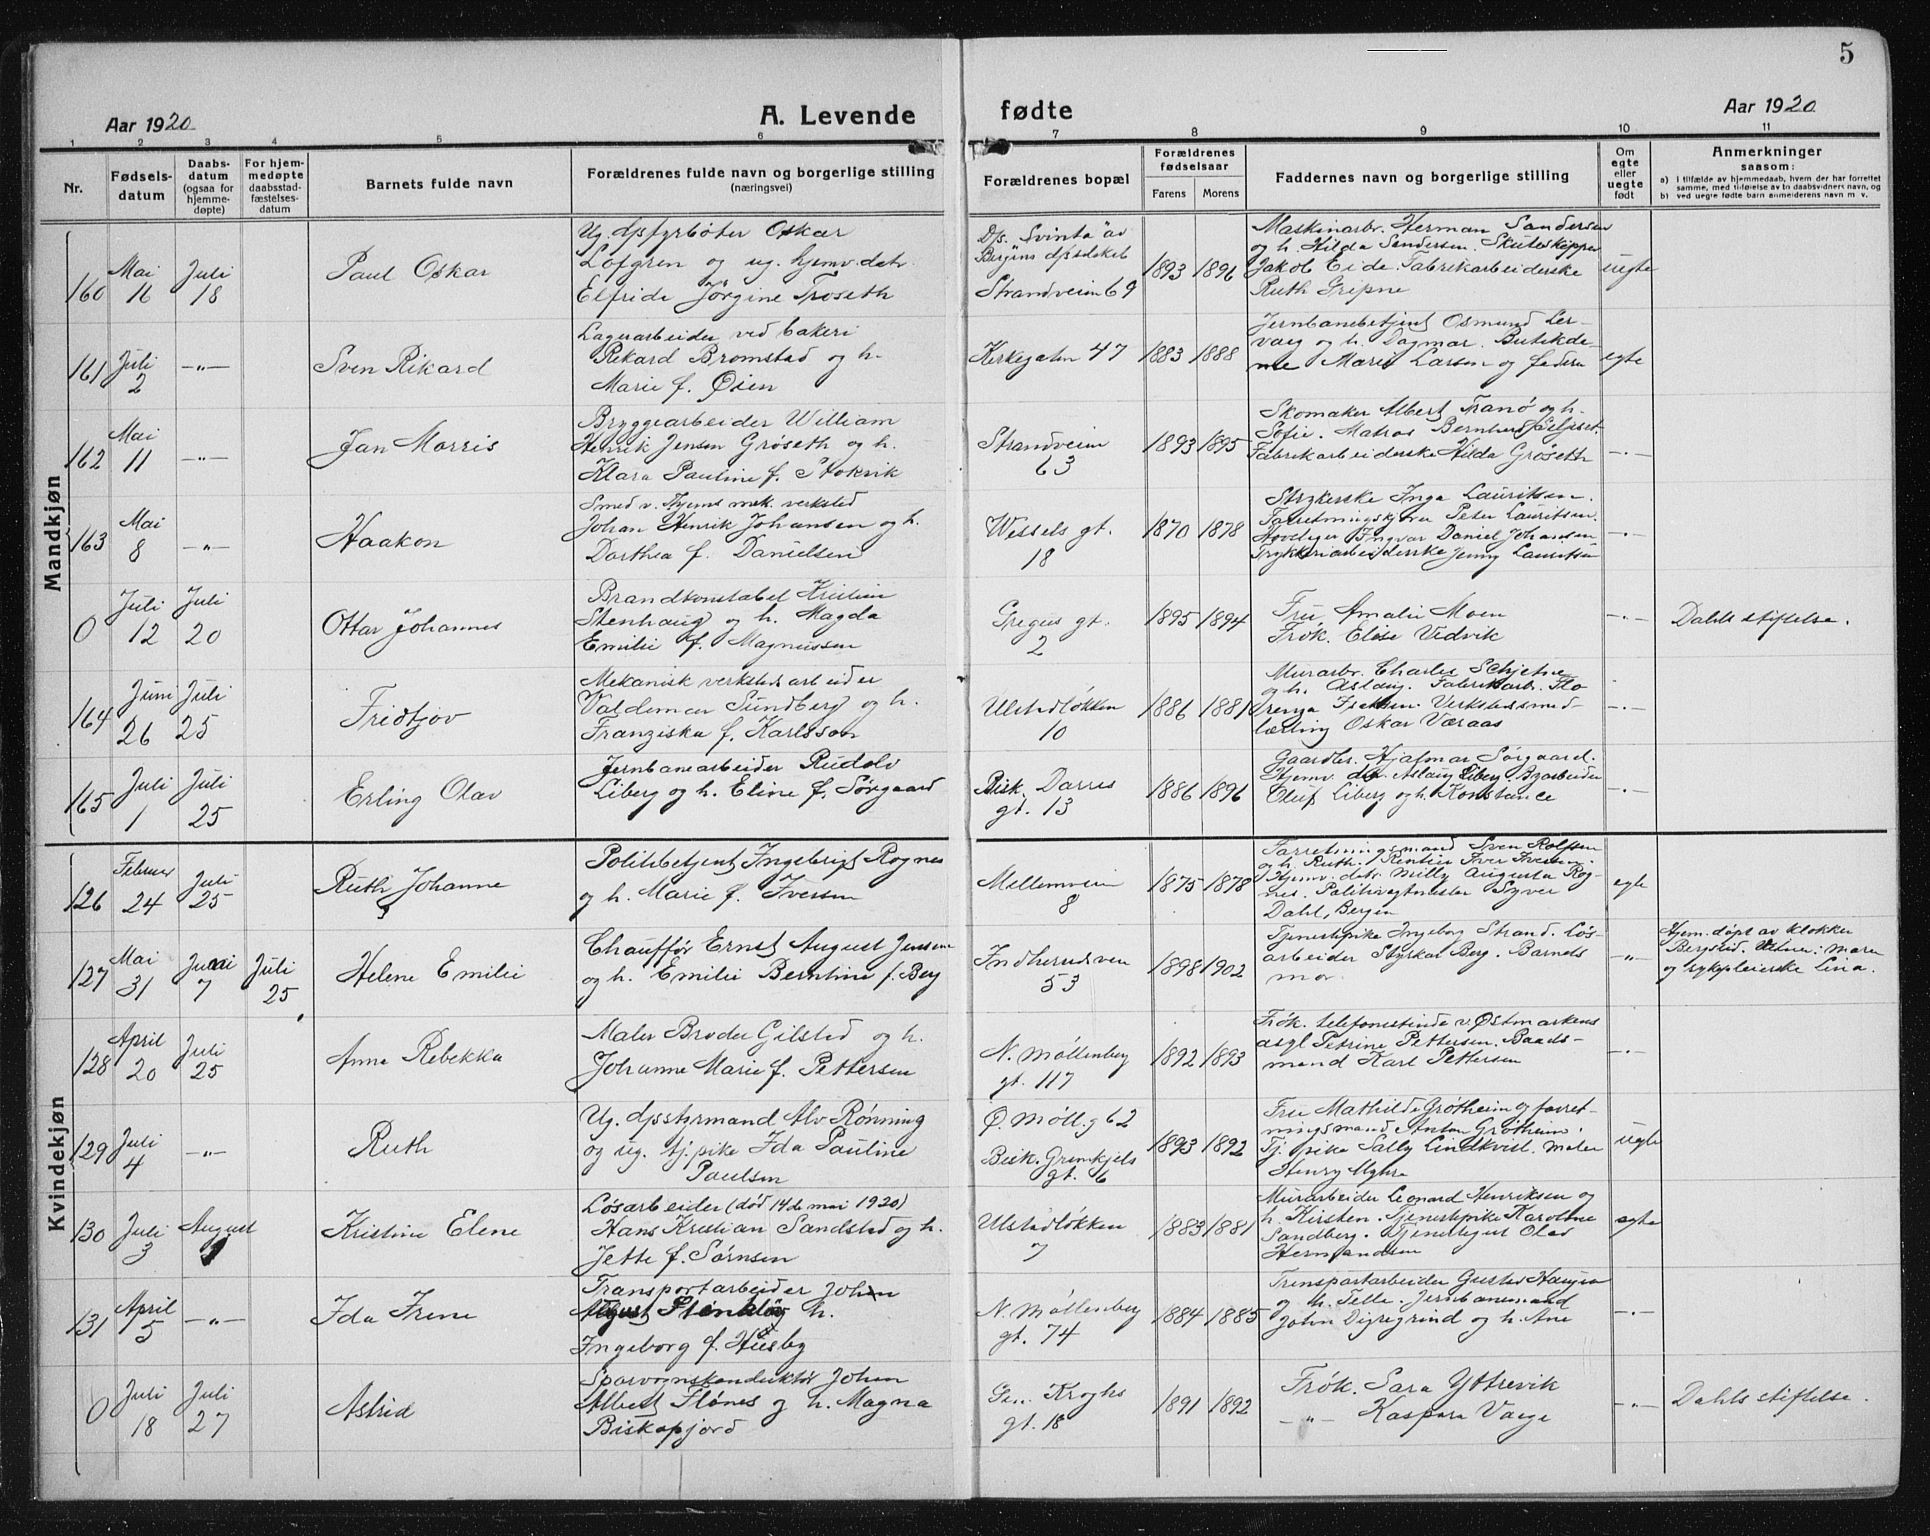 5
Aar 1920
A. Levende fødte
Aar 1920
1 2 3 4 5 6 7 8 9 10 11
Nr.
Fødsels-
datum
Daabs-
datum
(ogsaa for
hjemme-
døpte)
For hjem-
medøpte
daabsstad-
fæstelses-
datum
Barnets fulde navn
Forældrenes fulde navn og borgerlige stilling
(næringsvei)
Forældrenes bopæl
Forældrenes
fødselsaar
Farens Morens
Faddernes navn og borgerlig stilling
Om
egte
eller
uegte
født
Anmerkninger
saasom:
a) i tilfælde av hjemmedaab, hvem der har forrettet
samme, med tilføielse av to daabsvidners navn, og
b) ved uegte fødte barn anmelderens navn m. v.
Mandkjøn
160
Mai
16
Juli
18
Paul Oskar
Ug. dpsfyrbøter Oskar
Löfgren og ug. hjemv. datr.
Elfride Jörgine Troseth
D/s. "Svinta" av
Bergens dpskselskab
Strandveien 69
1893 1896
Maskinarbr. Herman Sandersen
og h. Hilda Sandersen. Skuteskipper
Jakob Eide. Fabrikarbeiderske
Ruth Gripne
uegte
161
Juli
2
—"—
Sven Rikard
Lagerarbeider ved bakeri
Rikard Bromstad og h.
Marie f. Øien
Kirkegaten 47
1883 1888
Jernbanebetjent Osmund Ler-
vaag og h. Dagmar. Butikda-
me Marie Larsen og faderen
egte
162
Mai
11
—"—
Jan Morris
Bryggearbeider William
Henrik Jensen Gröseth og h.
Klara Pauline f. Hokvik
Strandveien
63
1893 1895
Skomaker Albert Tranö og h.
Sofie. Matros Bernhard
Fabrikarbeiderske Hilda Gröseth
—"—
163
Mai
8
—"—
Haakon
Smed v. Hjems mek. verksted
Johan Henrik Johansen og h.
Dorthea f. Danielsen
Wessels gt.
18
1870 1878
Strykerske Inga Lauritsen.
Forretningskjører Peter Lauritsen.
Ingvar Daniel Johansen
Trykkeriarbeiderske Jenny Lauritsen
—"—
0
Juli
12
Juli
20
Ottar Johannes
Brandkonstabel Kristian
Stenhaug og h. Magda
Emilie f. Magnussen
Gregus gt.
2
1895 1894
Fru Amalie Moen
Frök. Elise Vedvik
—"—
Dahls stiftelse.
164
Juni
26
Juli
25
Fredtjov
Mekanisk verkstedsarbeider
Valdemar Sundberg og h.
Franziska f. Karlsson
Ulstadløkken
10
1886 1881
Murarbr. Charles Schjetne
og h. Aslaug. Fabrikarb. Flo-
renza Isaksen. Verkstedssmed
lærling Oskar Væraas
—"—
165
Juli
1
Juli
25
Erling Olav
Jernbanearbeider Rudolv
Liberg og h. Eline f. Sörgaard
Bisk. Darres
gt. 13
1886 1896
Gaardbr. Hjalmar Sörgaard.
Hjemv. dtr. Aslaug Liberg. Byarbeider
Oluf Liberg og h. Konstance
—"—
Kvindekjøn
126
Februar
24
Juli
25
Ruth Johanne
Politibetjent Ingebrigt Rognes
og h. Marie f. Iversen
Mellemveien
8
1875 1878
Forretningsmand Sven Rolfsen
og h. Ruth. Rentier Iver Iversen.
Hjemv. datr. Milly Augusta Rog-
nes. Politivagtmester Syver
Dahl, Bergen
egte
127
Mai
31
Juni
7
Juli
25
Helene Emilie
Chauffør Ernst August Jensen
og h. Emilie Berntine f. Berg
Indherredsveien
53
1898 1902
Tjenestepike Ingeborg Strand. Løs-
arbeider Styrkar Berg. Barnets
mor
—"—
Hjem. døpt av klokker
Bergstad. Vitne: moren
og sykepleierske Lina.
128
April
20
Juli
25
Anna Rebekka
Maler Broder Gilstad og h.
Johanne Marie f. Pettersen
N. Møllenberg
gt. 117
1892 1893
Frök. telefonistinde v. Østmarkens
asyl Petrine Pettersen. Baads-
mand Karl Pettersen
—"—
129
Juli
4
—"—
Ruth
Ug. dpsstyrmand Alv Rönning
og ug. tj.pike Ida Pauline
Paulsen
Ø. Möll. g 62
Bisk. Grimkjels
gt. 6
1893 1892
Fru Mathilde Grötheim og forret-
ningsmand Anton Grötheim.
Tj. pike Sally Lindkvist. Maler
Henry Myhre
uegte
130
Juli
3
August
1
Kristine Elene
Løsarbeider (død 14de mai 1920)
Hans Kristian Sandstad og h.
Jette f. Sörnsen
Ulstadløkken
7
1883 1881
Murarbeider Leonard Henriksen og
h. Kirsten. Tjenestepike Karoline
Sandberg. Tjenestegut Olav
Hermandsen
egte
131
April
5
—"—
Ida Irene
Transportarbeider Johan
August Stenklöv h.
Ingeborg f. Husby
N. Møllenberg
gt. 74
1884 1885
Transportarbeider Gustav Haugen
og h. Telle. Jernbanemand
John Digregrind og h. Ane
—"—
0
Juli
18
Juli
27
Astrid
Sporvognskonduktör Johan
Albert Flönes og h. Magna
Biskopfjord
Gen. Kroghs
gt. 18
1891 1892
Frök. Sara Yttrevik
—"— Kaspara Vaage
—"—
Dahls stiftelse.